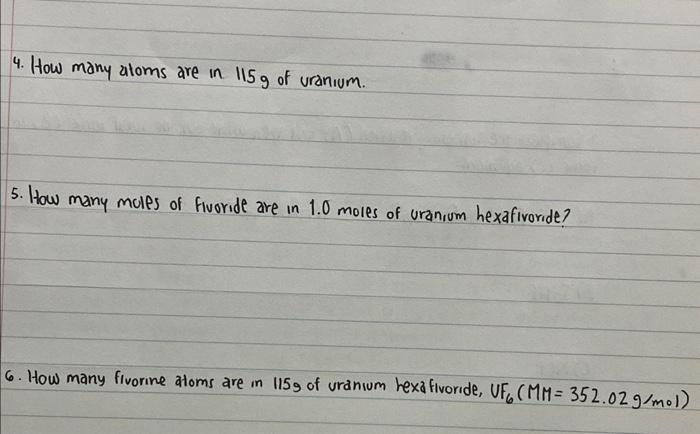 4. How many atoms are in 115 g of uranium.
5. How many moles of fluoride are in 1.0 moles of uranium hexafluoride?
6. How many fluorine atoms are in 115g of uranium hexafluoride, UF₆ (MM = 352.02 g/mol)